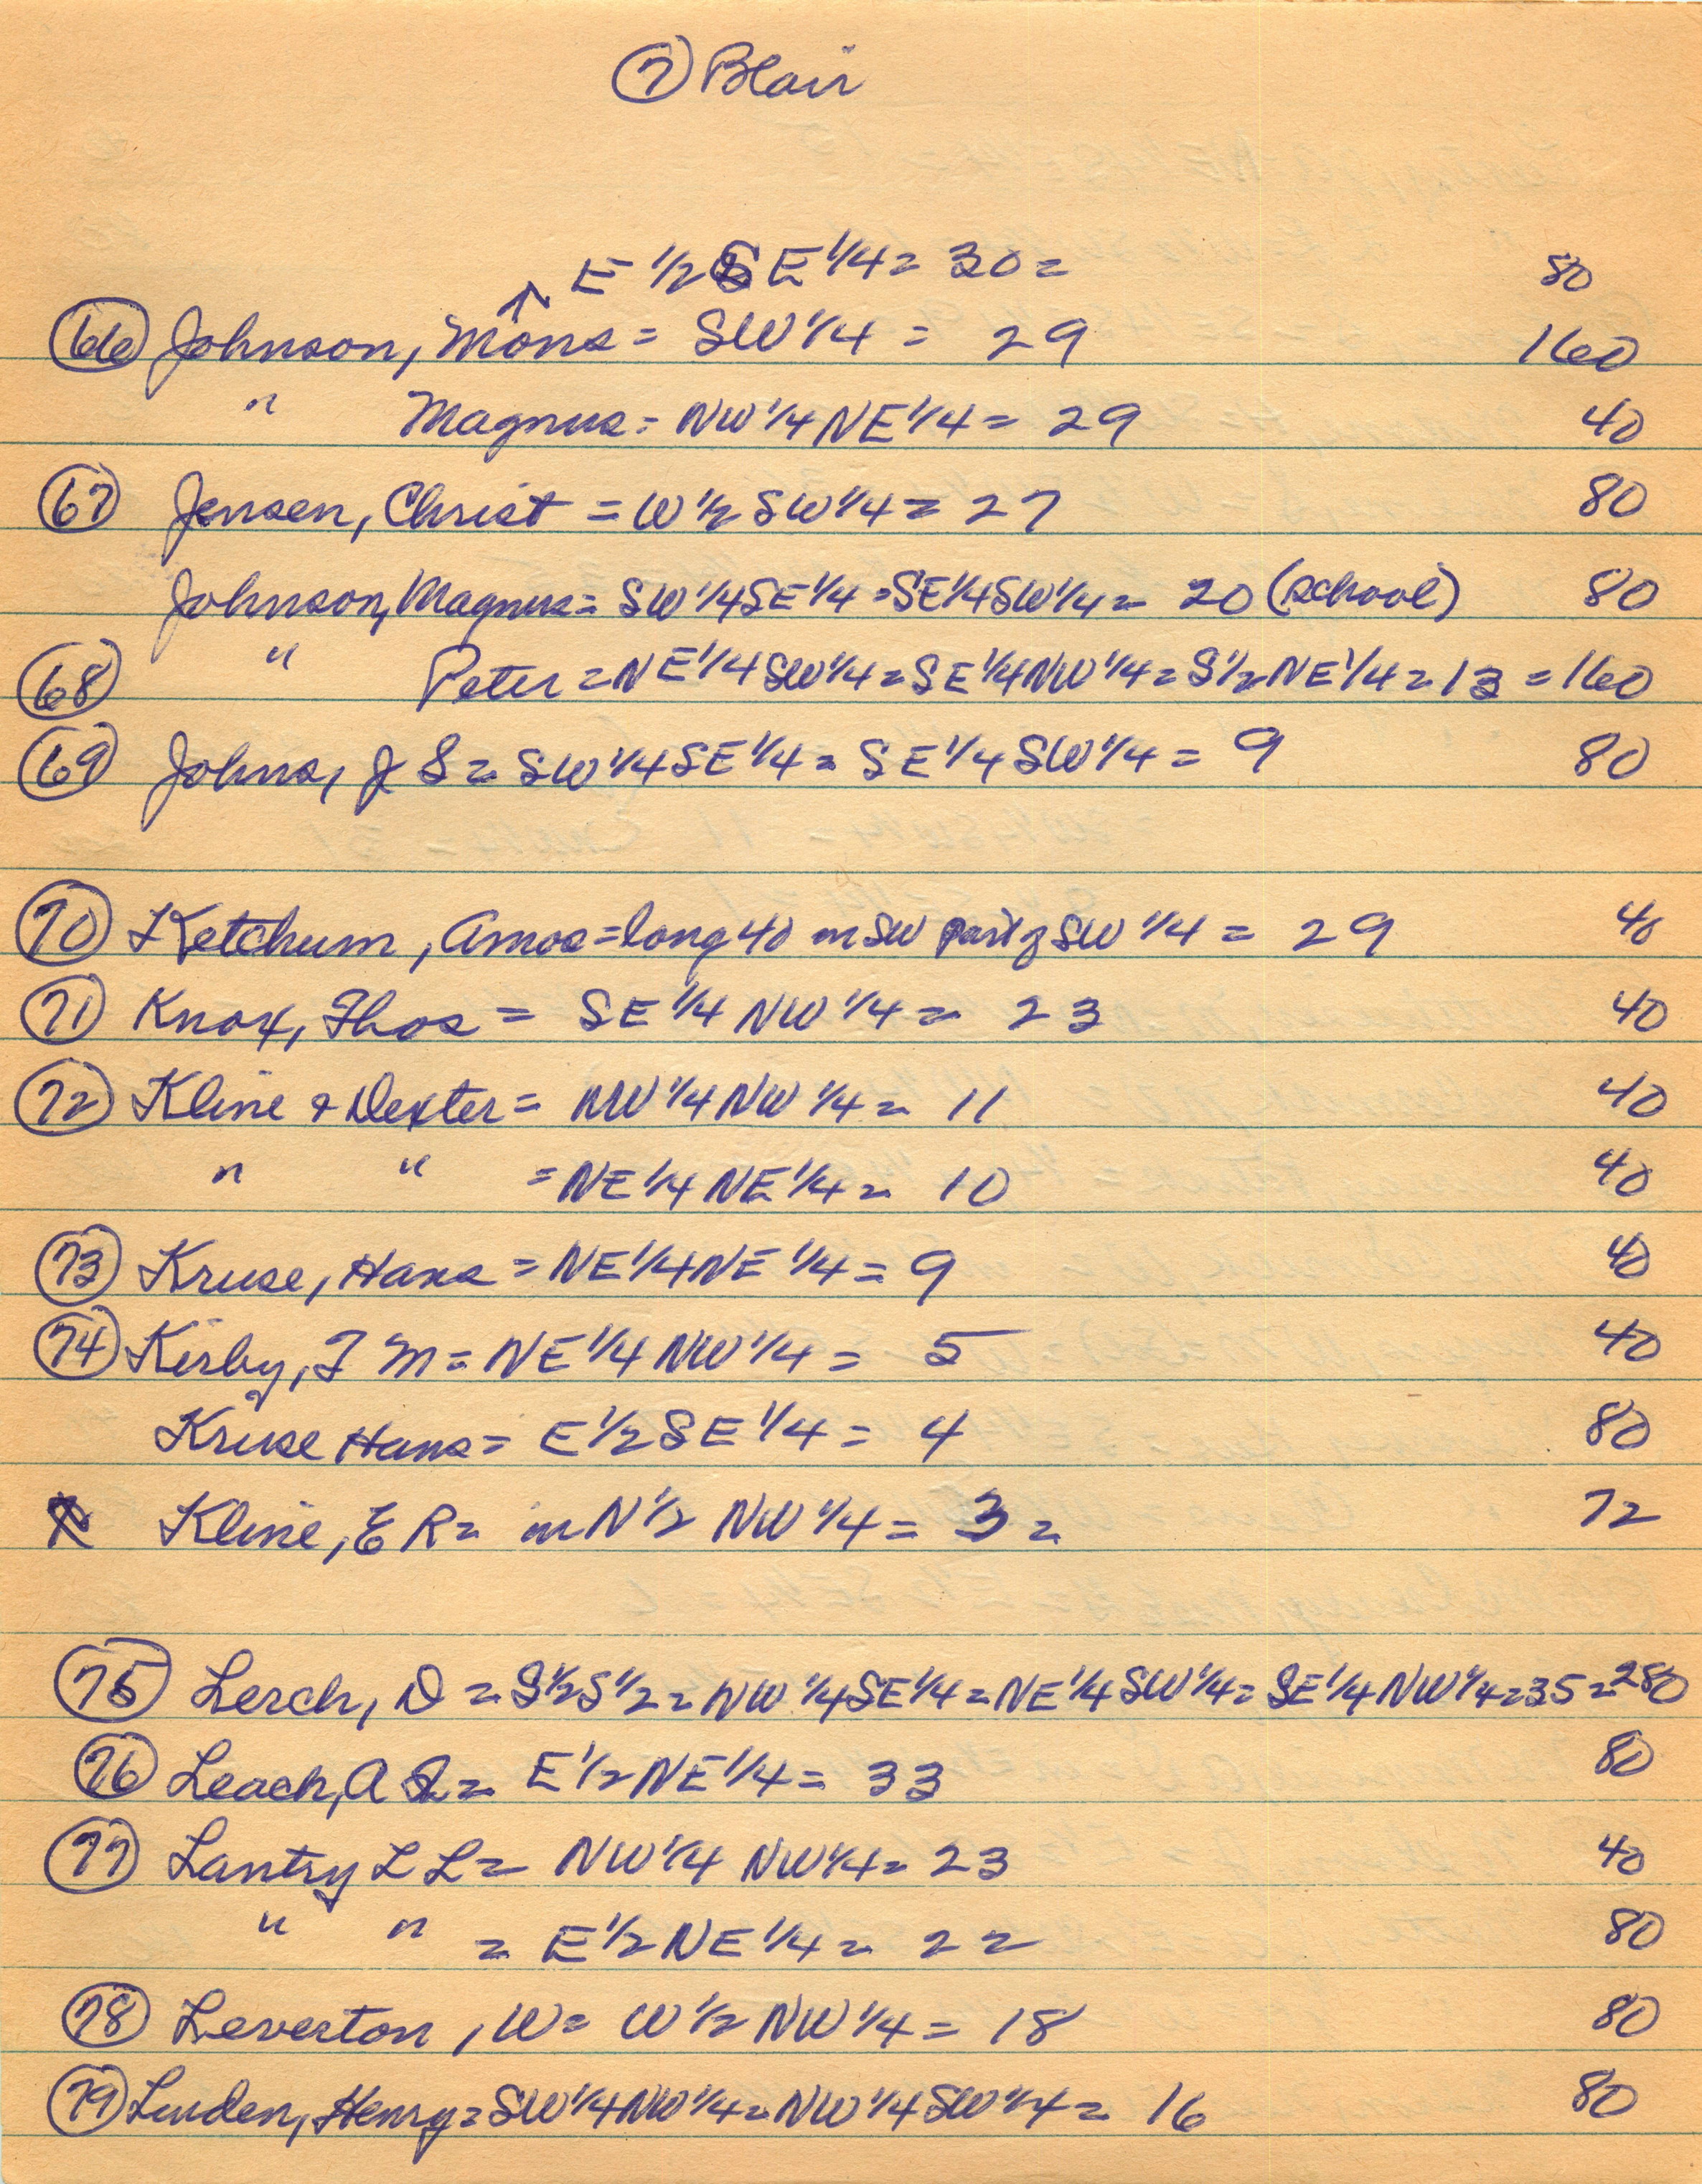 ⑦ Blair
E 1/2 SE 1/4 = 30 = 80
66 Johnson, Mons = SW 1/4 = 29 160
" Magnus = NW 1/4 NE 1/4 = 29 40
67 Jensen, Christ = W 1/2 SW 1/4 = 27 80
Johnson, Magnus = SW 1/4 SE 1/4 = SE 1/4 SW 1/4 = 20 (school) 80
68 " Peter = NE 1/4 SW 1/4 = SE 1/4 NW 1/4 = S 1/2 NE 1/4 = 13 = 160
69 Johns, J S = SW 1/4 SE 1/4 = SE 1/4 SW 1/4 = 9 80
70 Ketchum, Amos = long 40 in SW part of SW 1/4 = 29 40
71 Knox, Thos = SE 1/4 NW 1/4 = 23 40
72 Kline & Dexter = NW 1/4 NW 1/4 = 11 40
" " = NE 1/4 NE 1/4 = 10 40
73 Kruse, Hans = NE 1/4 NE 1/4 = 9 40
74 Kirby, F M = NE 1/4 NW 1/4 = 5 40
Kruse Hans = E 1/2 SE 1/4 = 4 80
Kline, E R = in N 1/2 NW 1/4 = 3 = 72
75 Lerch, D = S 1/2 S 1/2 = NW 1/4 SE 1/4 = NE 1/4 SW 1/4 = SE 1/4 NW 1/4 = 35 = 280
76 Leach, A = E 1/2 NE 1/4 = 33 80
77 Lantry L L = NW 1/4 NW 1/4 = 23 40
" " = E 1/2 NE 1/4 = 22 80
78 Leverton, W = W 1/2 NW 1/4 = 18 80
79 Linden, Henry = SW 1/4 NW 1/4 = NW 1/4 SW 1/4 = 16 80